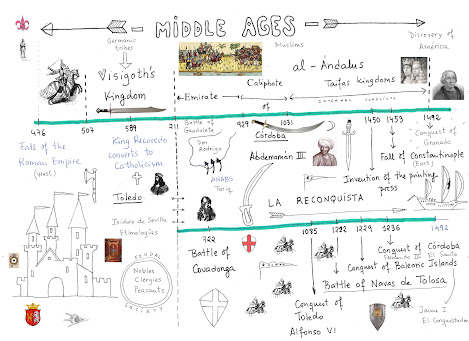 MIDDLE AGES
Germanic
tribes
Visigoth's
Kingdom
Muslims
al-Ándalus
Emirate
Caliphate
of
Taifas kingdoms
Discovery of
América
476
507
589
711
929
1031
1450
1453
1492
Fall of the
Roman Empire
(West)
King Recaredo
converts to
Catholicism
Toledo
Isidoro de Sevilla
Etimologías
Battle of
Guadalete
Don
Rodrigo
ARABS
Tariq
Córdoba
Abderramán III
Conquest of
Granada
Fall of Constantinople
(East)
Invention of the printing
press
LA RECONQUISTA
FEUDAL
Nobles
Clergies
Peasants
SOCIETY
722
1085
1212
1229
1236
1492
Battle of
Covadonga
Conquest of
Toledo
Alfonso VI
Conquest of Córdoba
Fernando III El Santo
Conquest of Balearic Islands
Battle of Navas de Tolosa
Jaume I
El Conquistador